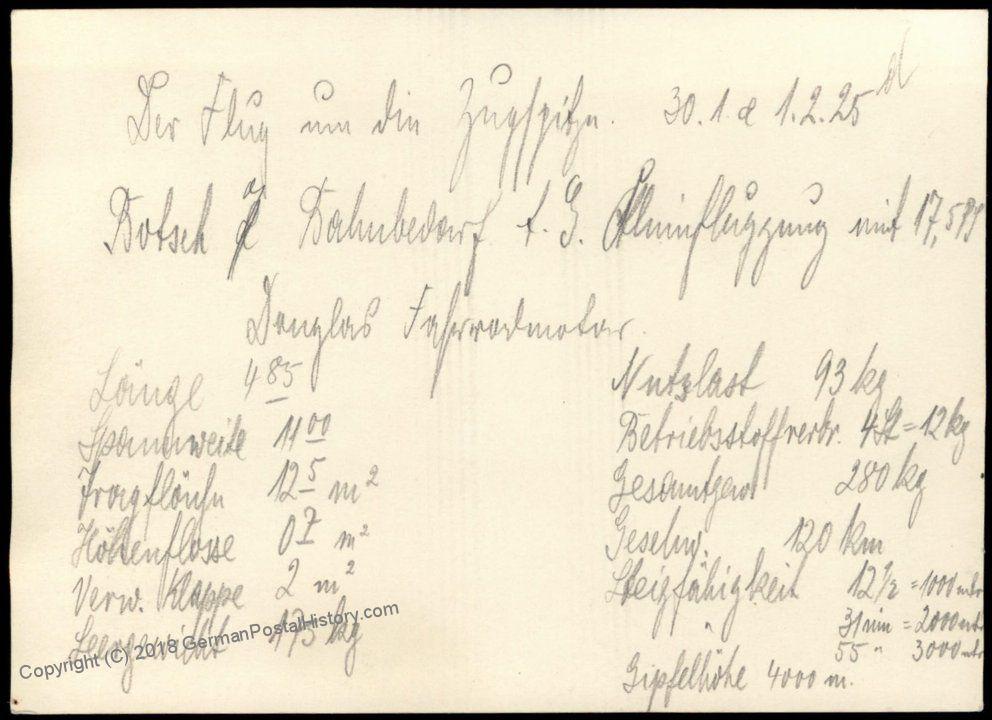 Der Flug um die Zugspitze. 30.1. & 1.2.25
Botsch Bahnbedarf A. G. Kleinflugzeug mit 17,5PS
Douglas Fahrradmotor.
Länge 4 85
Spannweite 11 00
Tragfläche 12 5 m²
Höhenflosse 0 7 m²
Verw. Klappe 2 m²
Leergewicht 175 kg
Nutzlast 93 kg
Betriebsstoffverbr. 4 St = 12 kg
Gesamtgew. 280 kg
Geschw. 120 km
Steigfähigkeit 12 1/2 = 1000 mtr
" 31 min = 2000 mtr
55 " 3000 mtr
Gipfelhöhe 4000 m.
Copyright (C) 2018 GermanPostalHistory.com